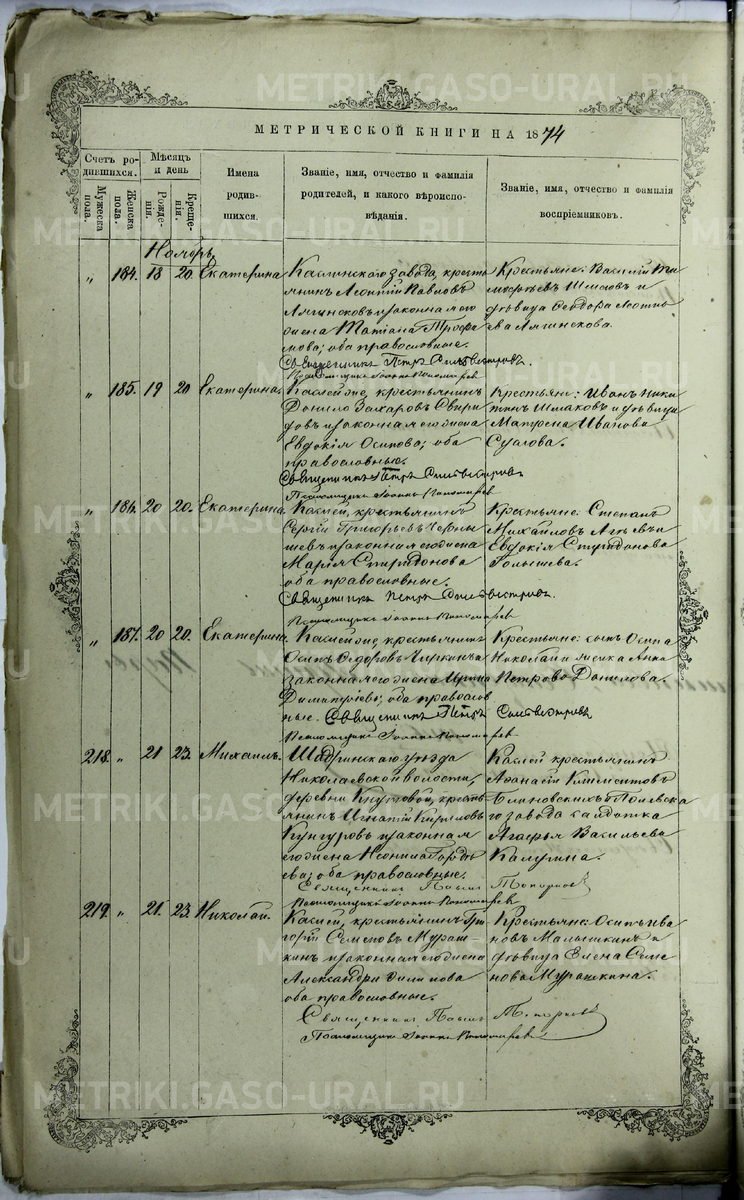 МЕТРИЧЕСКОЙ КНИГИ НА 1874
Счетъ родившихся.
Мужеска пола.
Женска пола.
Мѣсяцъ и день
Рожденія.
Крещенія.
Имена родившихся.
Званіе, имя, отчество и фамилія родителей, и какого вѣроисповѣданія.
Званіе, имя, отчество и фамилія воспріемниковъ.
Ноябрь
" 184. 18 20. Екатерина
Каслинскаго завода, кресть
янинъ Леонтій Павловъ
Лягинсковъ и законная его
жена Татіана Трофи
мова; оба православные.
Священникъ Петръ Сильвестровъ
Псаломщикъ Іоаннъ Пономаревъ
Крестьяне: Василій Ти
мофѣевъ Шмаковъ и
дѣвица Ѳеодора Леонть
ева Лягинскова.
" 185. 19 20 Екатерина.
Касслей же, крестьянинъ
Данило Захаровъ Свири
довъ и законная его жена
Евдокія Осипова; оба
православные.
Священникъ Петръ Сильвестровъ
Псаломщикъ Іоаннъ Пономаревъ
Крестьяне: Иванъ Ники
тинъ Шмаковъ и дѣвица
Матрена Иванова
" 186. 20 20. Екатерина.
Каслей, крестьянинъ
Сергій Григорьевъ Черны
шевъ и законная его жена
Марія Спиридонова
оба православные.
Священникъ Петръ Сильвестровъ
Псаломщикъ Іоаннъ Пономаревъ
Крестьяне: Степанъ
Михайловъ
Евдокія Спиридонова
Голышева.
" 187. 20 20. Екатерина.
Каслей же, крестьянинъ
Осипъ Ѳедоровъ Чиркинъ и
законная его жена Ирина
Димитріева; оба православ
ные. Священникъ Петръ Сильвестровъ
Псаломщикъ Іоаннъ Пономаревъ
Крестьяне: сынъ Осипа
Николай и женка Анна
Петрова Данилова.
218. " 21 23. Михаилъ.
Шадринскаго уѣзда
Николаевской волости,
деревни кресть
янинъ Игнатій Кириловъ
Кунгуровъ и законная
его жена Неонила Гордѣ
ева; оба православные.
Священникъ Павелъ Топорковъ
Псаломщикъ Іоаннъ Пономаревъ
Каслей крестьянинъ
Аѳанасій Климентовъ
Блиновскихъ и Полевска
го завода солдатка
Агафья Васильева
Калугина.
219. " 21. 23. Николай.
Каслей, крестьянинъ Гри
горій Семеновъ Мураш
кинъ и законная его жена
Александра Филипова
оба православные.
Священникъ Павелъ Топорковъ
Псаломщикъ Іоаннъ Пономаревъ
Крестьяне: Осипъ Ива
новъ Малышкинъ и
дѣвица Елена Семе
нова Мурашкина.
METRIKI.GASO-URAL.RU